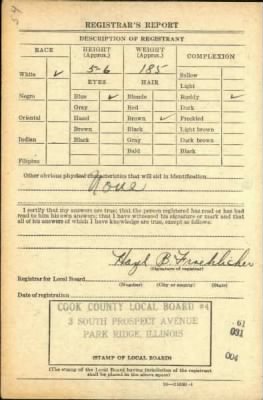 REGISTRAR'S REPORT
DESCRIPTION OF REGISTRANT
RACE HEIGHT (Approx.) WEIGHT (Approx.) COMPLEXION
White ✓ 5-6 185 Sallow
EYES HAIR Light
Negro Blue ✓ Blonde Ruddy ✓
Gray Red Dark
Oriental Hazel Brown ✓ Freckled
Brown Black Light brown
Indian Black Gray Dark brown
Bald Black
Filipino
Other obvious physical characteristics that will aid in identification
None
I certify that my answers are true; that the person registered has read or has had
read to him his own answers; that I have witnessed his signature or mark and that
all of his answers of which I have knowledge are true, except as follows:
B. Froehlicher
(Signature of registrar)
Registrar for Local Board
(Number) (City or county) (State)
Date of registration
COOK COUNTY LOCAL BOARD #4
3 SOUTH PROSPECT AVENUE
PARK RIDGE, ILLINOIS
61
031
004
(STAMP OF LOCAL BOARD)
(The stamp of the Local Board having jurisdiction of the registrant
shall be placed in the above space)